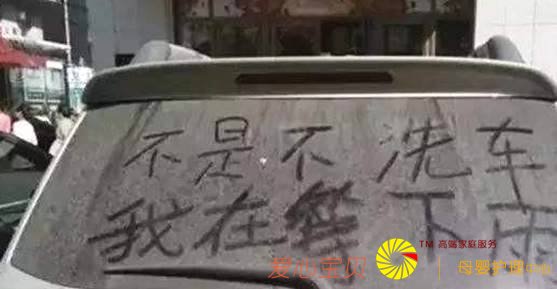 不是不洗车
我在等下雨
爱心宝贝
TM 高端家庭服务
母婴护理